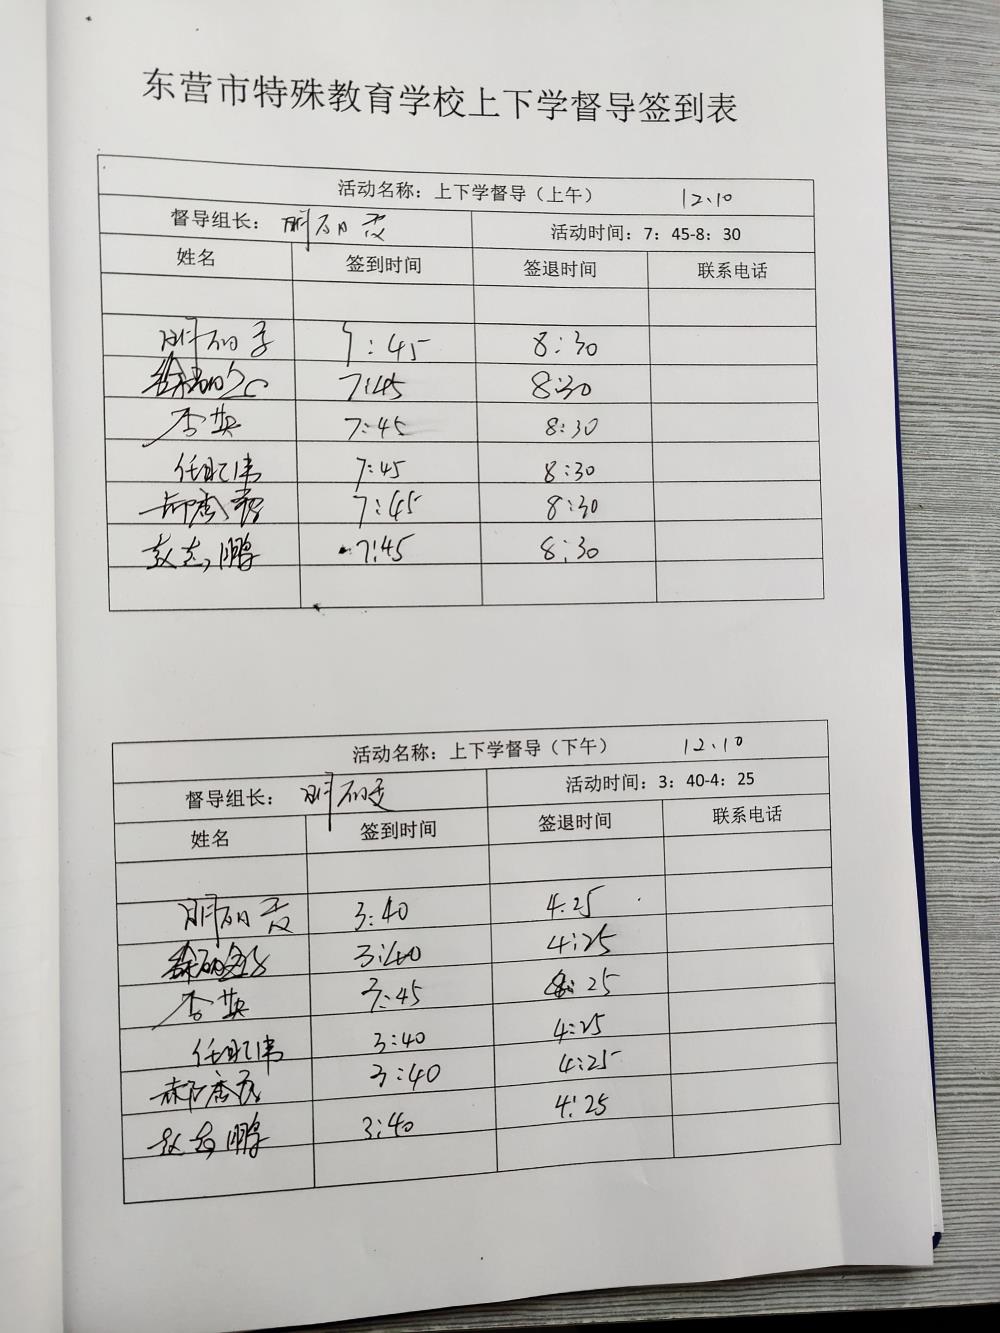 东营市特殊教育学校上下学督导签到表
活动名称：上下学督导（上午） 12.10
督导组长： 活动时间：7：45-8：30
姓名 签到时间 签退时间 联系电话
7:45 8:30
7:45 8:30
7:45 8:30
7:45 8:30
7:45 8:30
赵志鹏 7:45 8:30
活动名称：上下学督导（下午） 12.10
督导组长： 活动时间：3：40-4：25
姓名 签到时间 签退时间 联系电话
3:40 4:25
3:40 4:25
3:45 :25
3:40 4:25
3:40 4:25
赵志鹏 3:40 4:25